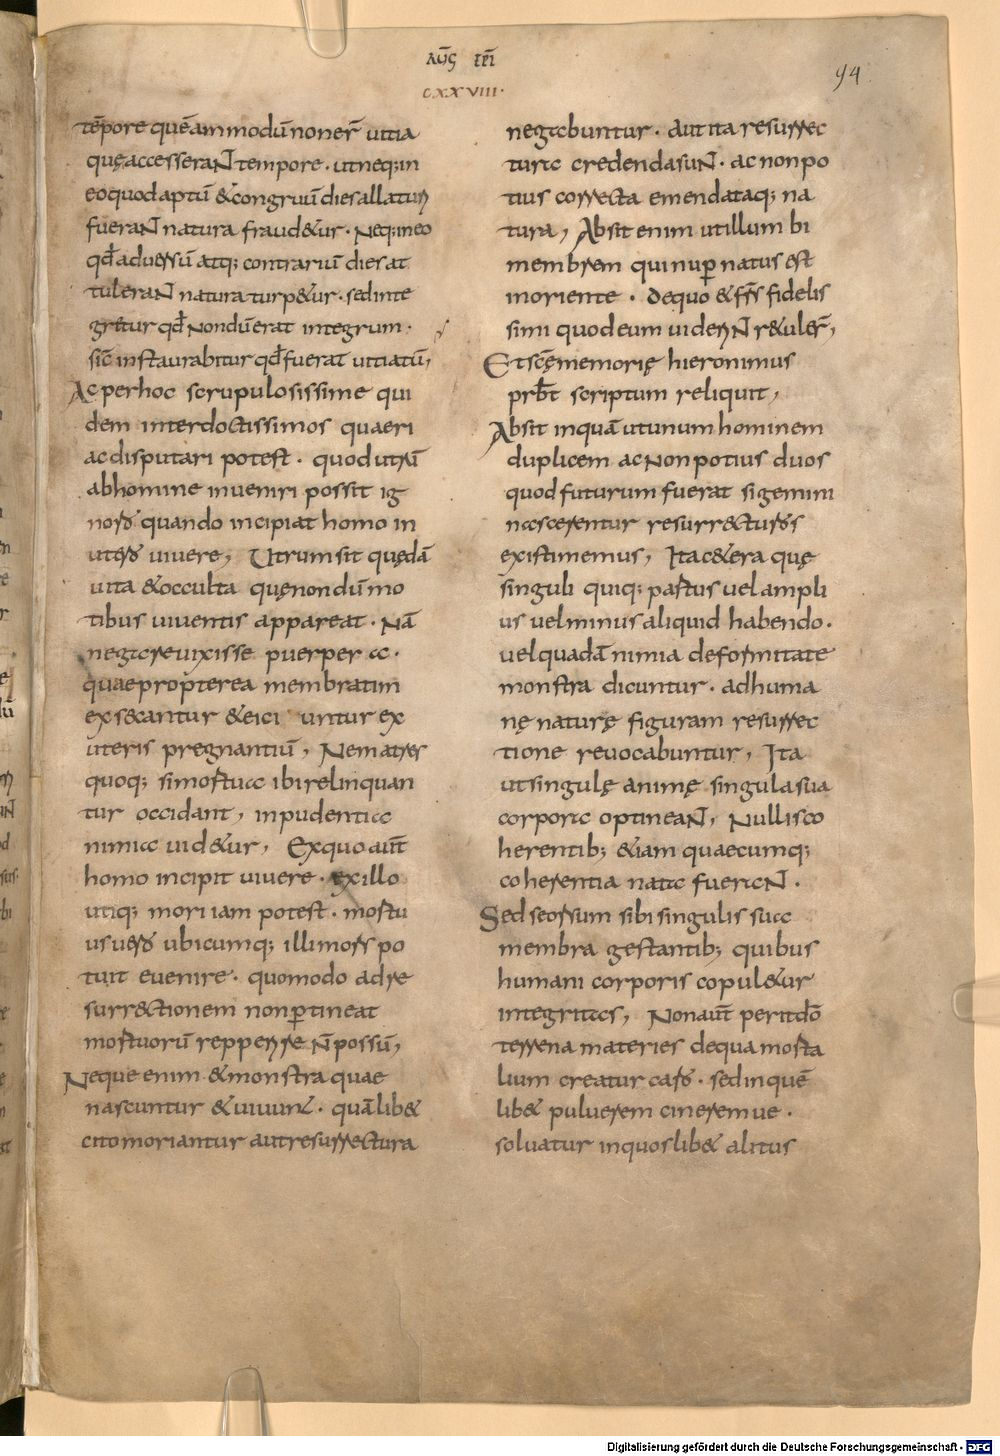 AUG̅S EPI̅
CXXVIII·
94
te̅pore que̅ammodu̅ noner̅ uitia
quęaccesseraNt tempore · utneq; in
eoquodaptu̅ &congruu̅ diesallatur
fueraNt natura fraud&ur · Neq; ineo
qd̅ aduersu̅ atq; contrariu̅ diesat
tuleraNt natura turp&ur · sedinte
gretur qd̅ Nondu̅erat integrum ·
sic̅ instaurabitur qd̅ fuerat uitiatu̅,
Acperhoc scrupulosissime qui
dem interdoctissimos quaeri
acdisputari potest · quodutru̅
abhomine inueniri possit ig
noro quando incipiat homo in
utero uiuere, Utrumsit quęda̅
uita &occulta quęnondu̅ mo
tibus uiuentis appareat · Na̅
negare uixisse puerpera ·
quaepropterea membratim
exsecantur &eici untur ex
uteris pregnantiu̅, Nematres
quoq; simortua ibirelinquan
tur occidant, inpudentia
nimia uid&ur, Exquo aut̅
homo incipit uiuere · exillo
utiq; mori iam potest · mortu
usuero ubicumq; illimors po
tuit euenire · quomodo adre
surrectionem nonp̱tineat
mortuoru̅ repperire n̅possu̅,
Neque enim &monstra quae
nascuntur &uiuunt · qua̅lib&
citomoriantur autresurrectura
negabuntur · autita resurrec
tura credendasuNt · ac nonpo
tius correcta emendataq; na
tura, Absit enim utillum bi
membrem quinup̱ natus est
inoriente · dequo &frs̅ fidelis
simi quodeum uiderNt r&uler̅,
Etsce̅memorię hieronimus
prb̅t scriptum reliquit,
Absit inqua̅ utunum hominem
duplicem acNonpotius duos
quodfuturumfuerat sigemini
nascerentur resurrecturos
existimemus, Itac&era quę
singuli quiq; partus uelampli
us uelminus aliquid habendo ·
uelquada̅ nimia deformitate
monstra dicuntur · adhuma
nę naturę figuram resurrec
tione reuocabuntur, Ita
utsingulę animę singulasua
corpora optineaNt, Nullisco
herentib; &iam quaecumq;
coherentia nata fueraNt ·
Sed seorsum sibi singulis sua
membra gestantib; quibus
humani corporis copul&ur
integritas, Nonaut̅ peritdo̅
terrena materies dequa morta
lium creatur caro · sedinque̅
lib& puluerem cineremue ·
soluatur inquoslib& alitus
Digitalisierung gefördert durch die Deutsche Forschungsgemeinschaft - DFG